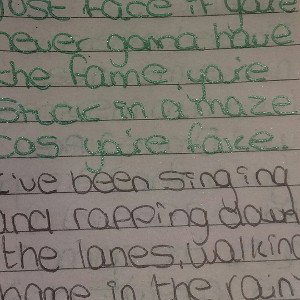 Just face it you're
never gonna have
the fame, you're
stuck in a maze
cos you're fake.
I've been singing
and rapping down
the lanes, walking
home in the rain